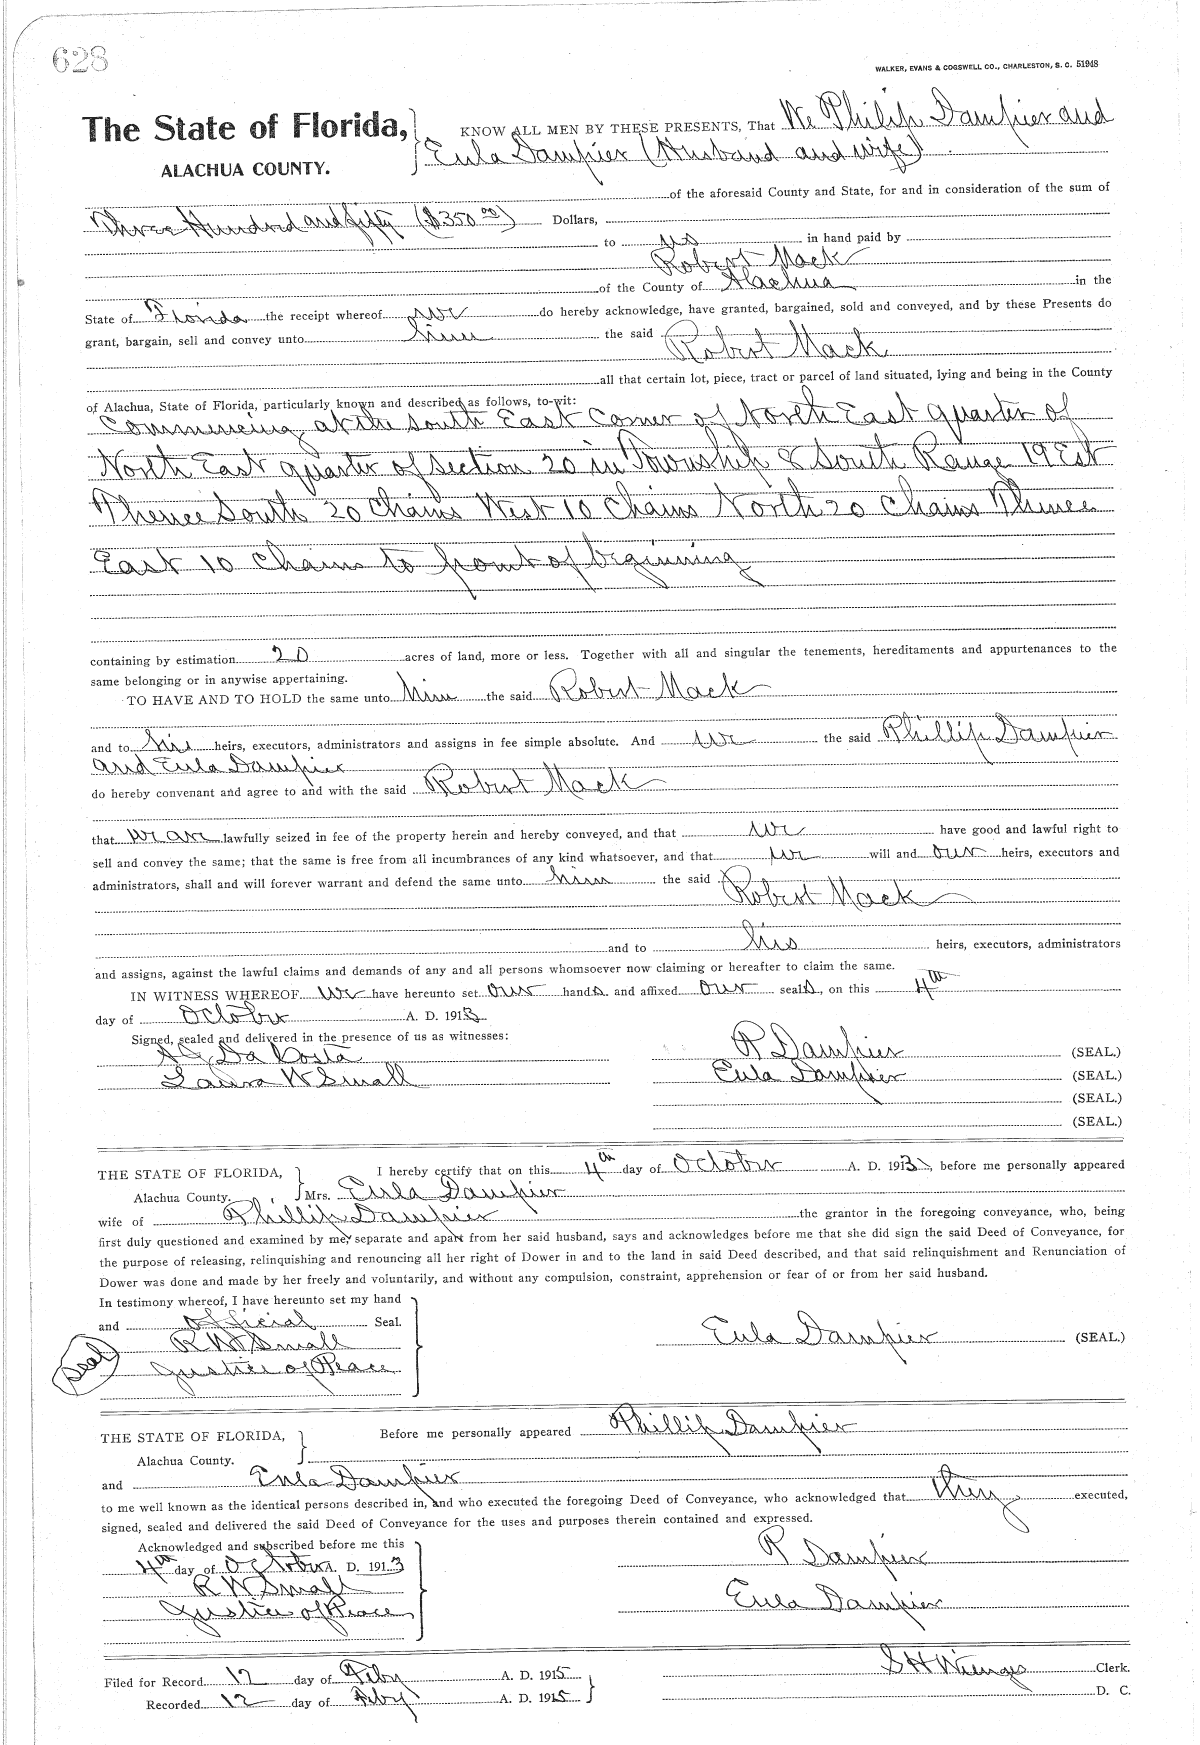 628
WALKER, EVANS & COGSWELL CO., CHARLESTON, S. C. 51948
The State of Florida, KNOW ALL MEN BY THESE PRESENTS, That We Philip Dampier and
ALACHUA COUNTY. Eula Dampier (Husband and wife)
of the aforesaid County and State, for and in consideration of the sum of
Three Hundred and fifty ($350.00) Dollars,
to us in hand paid by
Robert Mack
of the County of Alachua in the
State of Florida the receipt whereof we do hereby acknowledge, have granted, bargained, sold and conveyed, and by these Presents do
grant, bargain, sell and convey unto him the said Robert Mack
all that certain lot, piece, tract or parcel of land situated, lying and being in the County
of Alachua, State of Florida, particularly known and described as follows, to-wit:
Commencing at the South East Corner of North East quarter of
North East quarter of Section 20 in Township 8 South Range 19 East
Thence South 20 Chains West 10 Chains North 20 Chains Thence
East 10 Chains to point of beginning
containing by estimation 20 acres of land, more or less. Together with all and singular the tenements, hereditaments and appurtenances to the
same belonging or in anywise appertaining.
TO HAVE AND TO HOLD the same unto him the said Robert Mack
and to his heirs, executors, administrators and assigns in fee simple absolute. And we the said Phillip Dampier
and Eula Dampier
do hereby convenant and agree to and with the said Robert Mack
that we are lawfully seized in fee of the property herein and hereby conveyed, and that we have good and lawful right to
sell and convey the same; that the same is free from all incumbrances of any kind whatsoever, and that we will and our heirs, executors and
administrators, shall and will forever warrant and defend the same unto him the said Robert Mack
and to his heirs, executors, administrators
and assigns, against the lawful claims and demands of any and all persons whomsoever now claiming or hereafter to claim the same.
IN WITNESS WHEREOF We have hereunto set our hands and affixed our seals, on this 4th
day of October A. D. 1913
Signed, sealed and delivered in the presence of us as witnesses:
Da Costa R Dampier (SEAL.)
Laura W Small Eula Dampier (SEAL.)
(SEAL.)
(SEAL.)
THE STATE OF FLORIDA, I hereby certify that on this 4th day of October A. D. 1913, before me personally appeared
Alachua County. Mrs. Eula Dampier
wife of Phillip Dampier the grantor in the foregoing conveyance, who, being
first duly questioned and examined by me, separate and apart from her said husband, says and acknowledges before me that she did sign the said Deed of Conveyance, for
the purpose of releasing, relinquishing and renouncing all her right of Dower in and to the land in said Deed described, and that said relinquishment and Renunciation of
Dower was done and made by her freely and voluntarily, and without any compulsion, constraint, apprehension or fear of or from her said husband.
In testimony whereof, I have hereunto set my hand
and official Seal.
R W Small Eula Dampier (SEAL.)
Seal Justice of Peace
THE STATE OF FLORIDA, Before me personally appeared Phillip Dampier
Alachua County.
and Eula Dampier
to me well known as the identical persons described in, and who executed the foregoing Deed of Conveyance, who acknowledged that they executed,
signed, sealed and delivered the said Deed of Conveyance for the uses and purposes therein contained and expressed.
Acknowledged and subscribed before me this
4th day of October A. D. 1913 R Dampier
R W Small
Justice of Peace Eula Dampier
Filed for Record 12 day of Feby A. D. 1915 S H Wienges Clerk.
Recorded 12 day of Feby A. D. 1915 D. C.